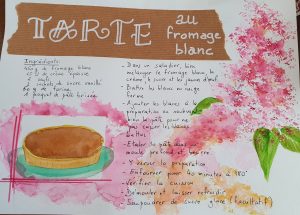 TARTE au
fromage
blanc
Ingrédients:
fromage blanc
de crème épaisse
sucre vanillé
de farine
1 paquet de pâte brisée
- Dans un saladier, bien
mélanger le fromage blanc, la
crème, le sucre et les jaunes d'œuf
- Battre les blancs en neige
ferme
- Ajouter les blancs à la
préparation
la pâte pour ne
pas casser les blancs
battus
- Etaler la pâte dans un
moule profond et beurré
- Y verser la préparation
- Enfourner pour 40 minutes à 180°
- Vérifier la cuisson
- Démouler et laisser refroidir
- Saupoudrer de sucre glace (facultatif)